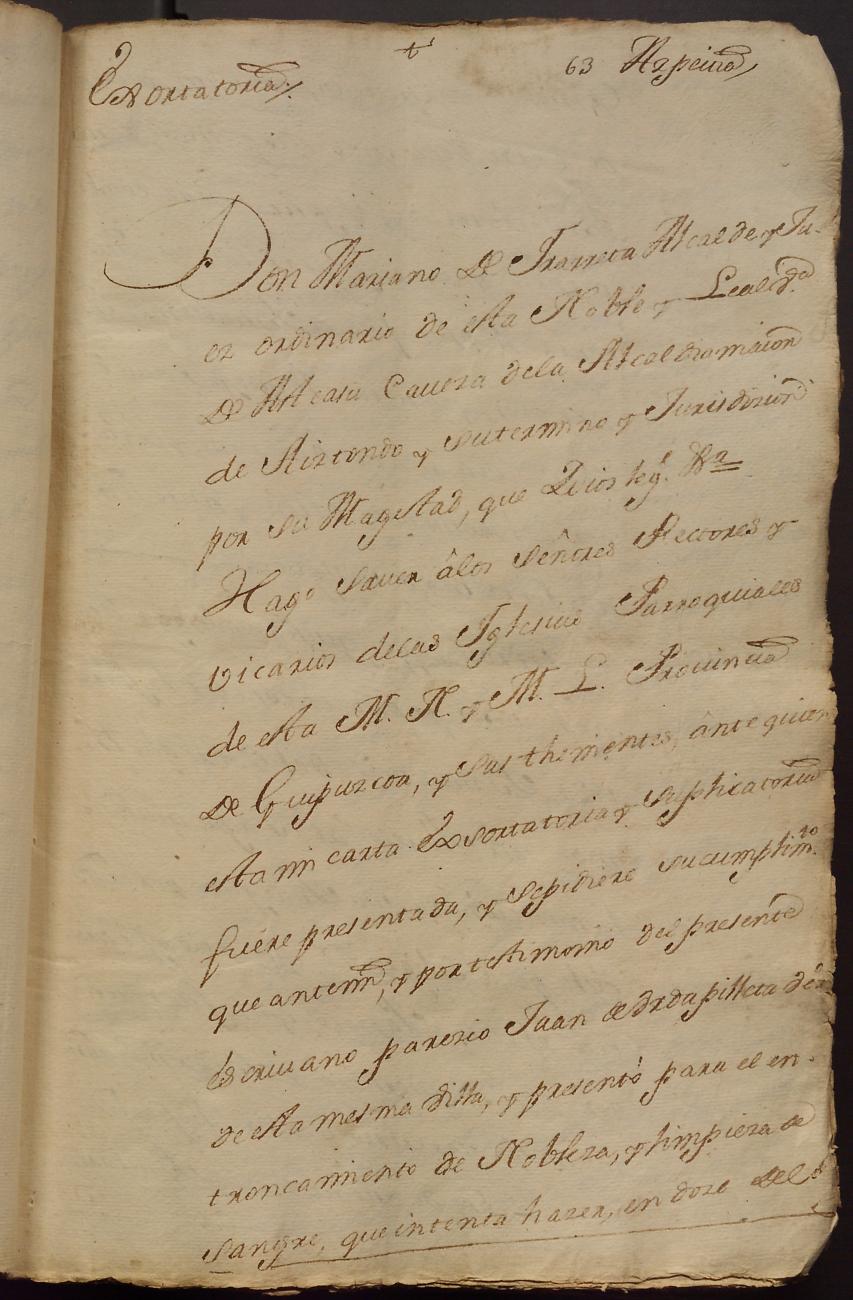 Exortatoria
t
63 Azpeitia
Don Mariano De Irarreta Alcalde y Ju-
ez ordinario de esta Noble y Leal
De Alcasa Caveza dela Alcaldiamaior
de Aiztondo y su termino y Jurisdizion
por su Magestad, que Dios
Hago saver âlos señores Rectores y
vicarios delas Iglesias Parroquiales
de esta M. N. y M. L. Provincia
De Guipuzcoa, y sus thenientes, ânte quien
esta mi carta Exsortatoria y suplicatoria
fuére presentada, y sepidiere sucumplim.to
que antemi, y por testimonio del presente
Escriuano parezio Juan de Ordapilleta
de esta mesma villa, y presentó para el en-
troncamiento de Nobleza, y limpieza de
sangre, que intenta hazer, en doze Del